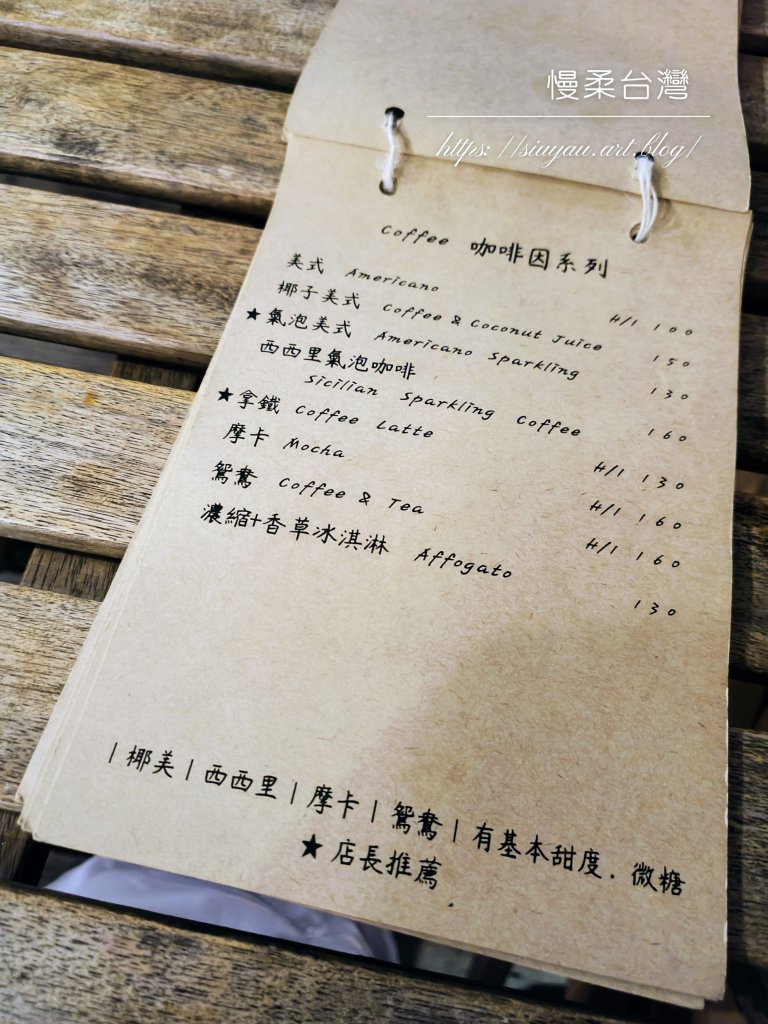 慢柔台灣
https://siuyau.art.blog/
Coffee 咖啡因系列
美式 Americano H/I 100
椰子美式 Coffee & Coconut Juice 150
★氣泡美式 Americano Sparkling 130
西西里氣泡咖啡
Sicilian Sparkling Coffee 160
★拿鐵 Coffee Latte H/I 130
摩卡 Mocha H/I 160
鴛鴦 Coffee & Tea H/I 160
濃縮+香草冰淇淋 Affogato 130
|椰美|西西里|摩卡|鴛鴦|有基本甜度.微糖
★店長推薦